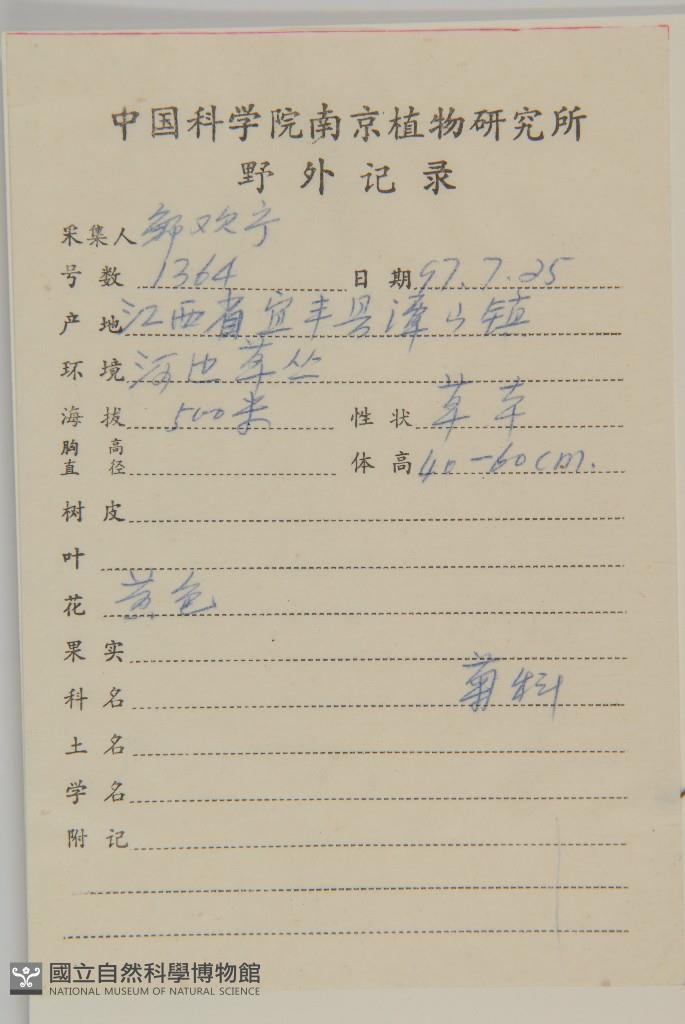 中国科学院南京植物研究所
野外记录
采集人 邹欢宁
号数 1364 日期 97.7.25
产地 江西省宜丰县潭山镇
环境 草丛
海拔 500米 性状 草本
胸高直径 体高 40-60cm.
树皮
叶
花 黄色
果实
科名 菊科
土名
学名
附记
國立自然科學博物館
NATIONAL MUSEUM OF NATURAL SCIENCE